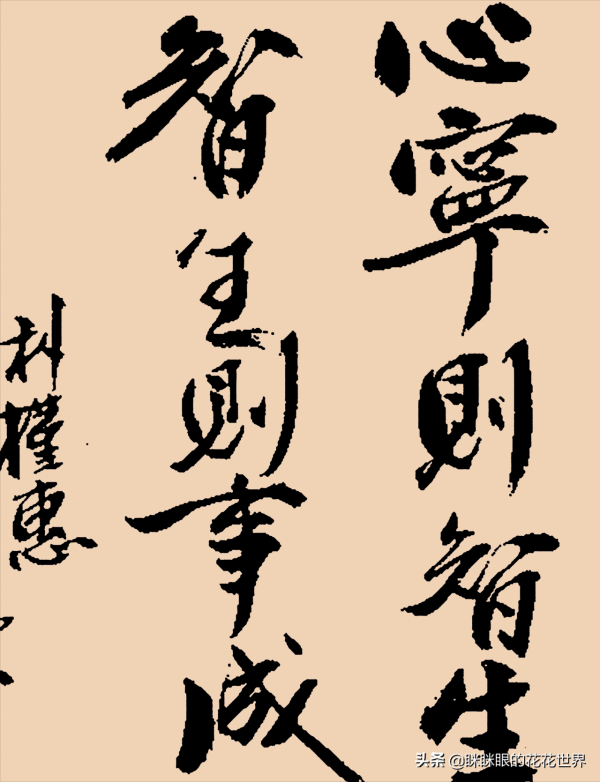 心寧則智生
智生則事成
朴槿惠
头条 @眯眯眼的花花世界